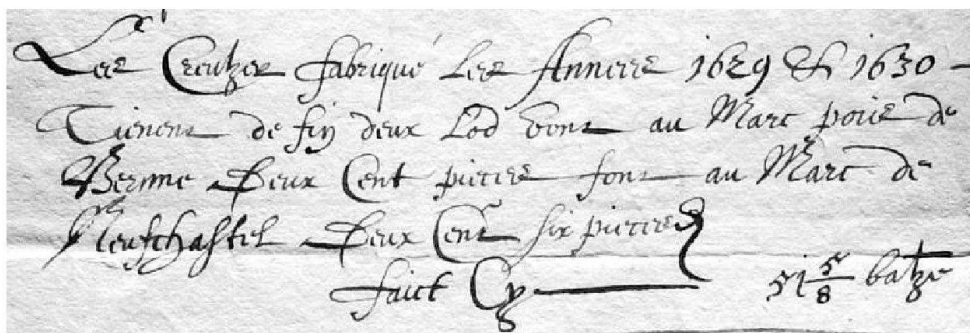 Les Creutzer fabriqué les Annees 1629 & 1630 -
Tienent de fin deux Lod vont au Marc poix de
Bernne Deux Cent pieces font au Marc de
Neufchastel Deux Cent six pieces
faict Cy 51 5/8 batze